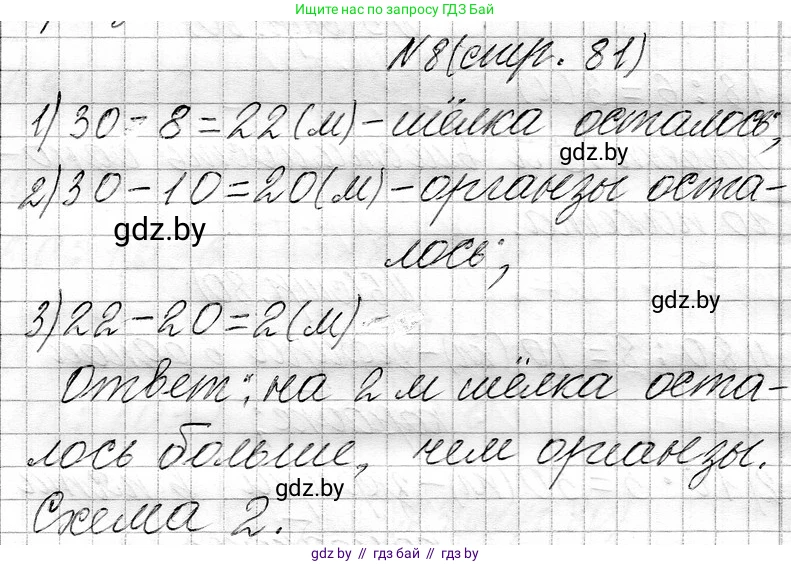 Ответы найдены по запросу ГДЗ Бай
№8(стр. 81)
1) 30 - 8 = 22 (м) - шёлка осталось;
gdz.by
2) 30 - 10 = 20 (м) - органзы оста-
gdz.by
лось;
gdz.by
3) 22 - 20 = 2 (м)
Ответ: на 2 м шёлка оста-
лось больше, чем органзы.
gdz.by
Схема 2.
gdz.by // гдз бай // gdz.by